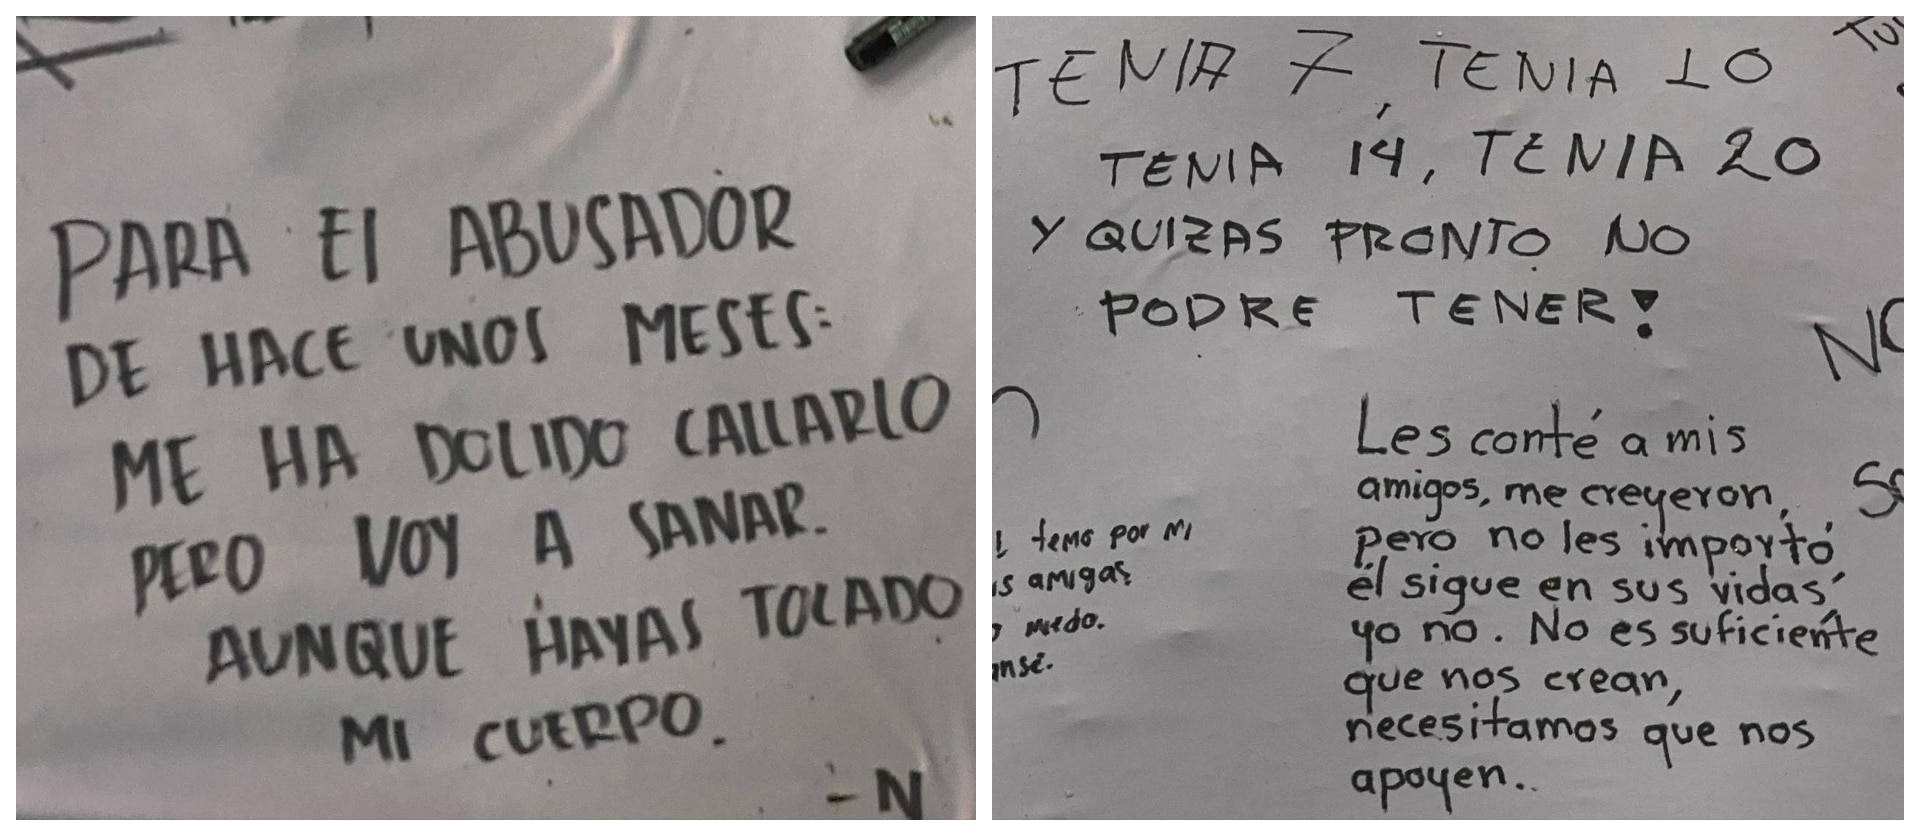 PARA El ABUSADOR
DE HACE UNOS MESES:
ME HA DOLIDO CALLARLO
PERO VOY A SANAR.
AUNQUE HAYAS TOCADO
MI CUERPO.
- N
TENIA 7, TENIA 10
TENIA 14, TENIA 20
Y QUIZAS PRONTO NO
PODRE TENER!
temo por mi
amigas
miedo.
Les conté a mis
amigos, me creyeron,
pero no les importó
él sigue en sus vidas,
yo no. No es suficiente
que nos crean,
necesitamos que nos
apoyen..
NO